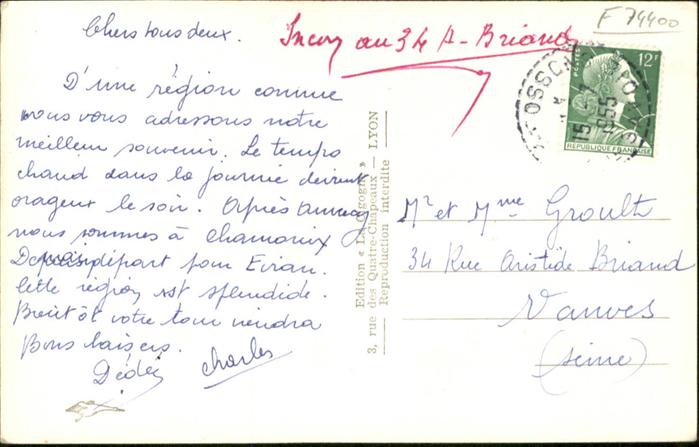 Chers tous deux.
D'une région connue
nous vous adressons notre
meilleur souvenir. Le temps
chaud dans la journée devient
orageux le soir. Après Annecy
nous sommes à Chamonix
Demain départ pour Evian.
Cette région est splendide.
Bientôt votre tour viendra
Bons baisers.
Dédée Charles
Inconnu au 34 A. Briand
F 74400
12F
POSTES
REPUBLIQUE FRANÇAISE
15
1955
Edition « La Cigogne »
3, rue des Quatre-Chapeaux — LYON
Reproduction interdite
Mr et Mme Groult
34 Rue Aristide Briand
Vanves
(Seine)